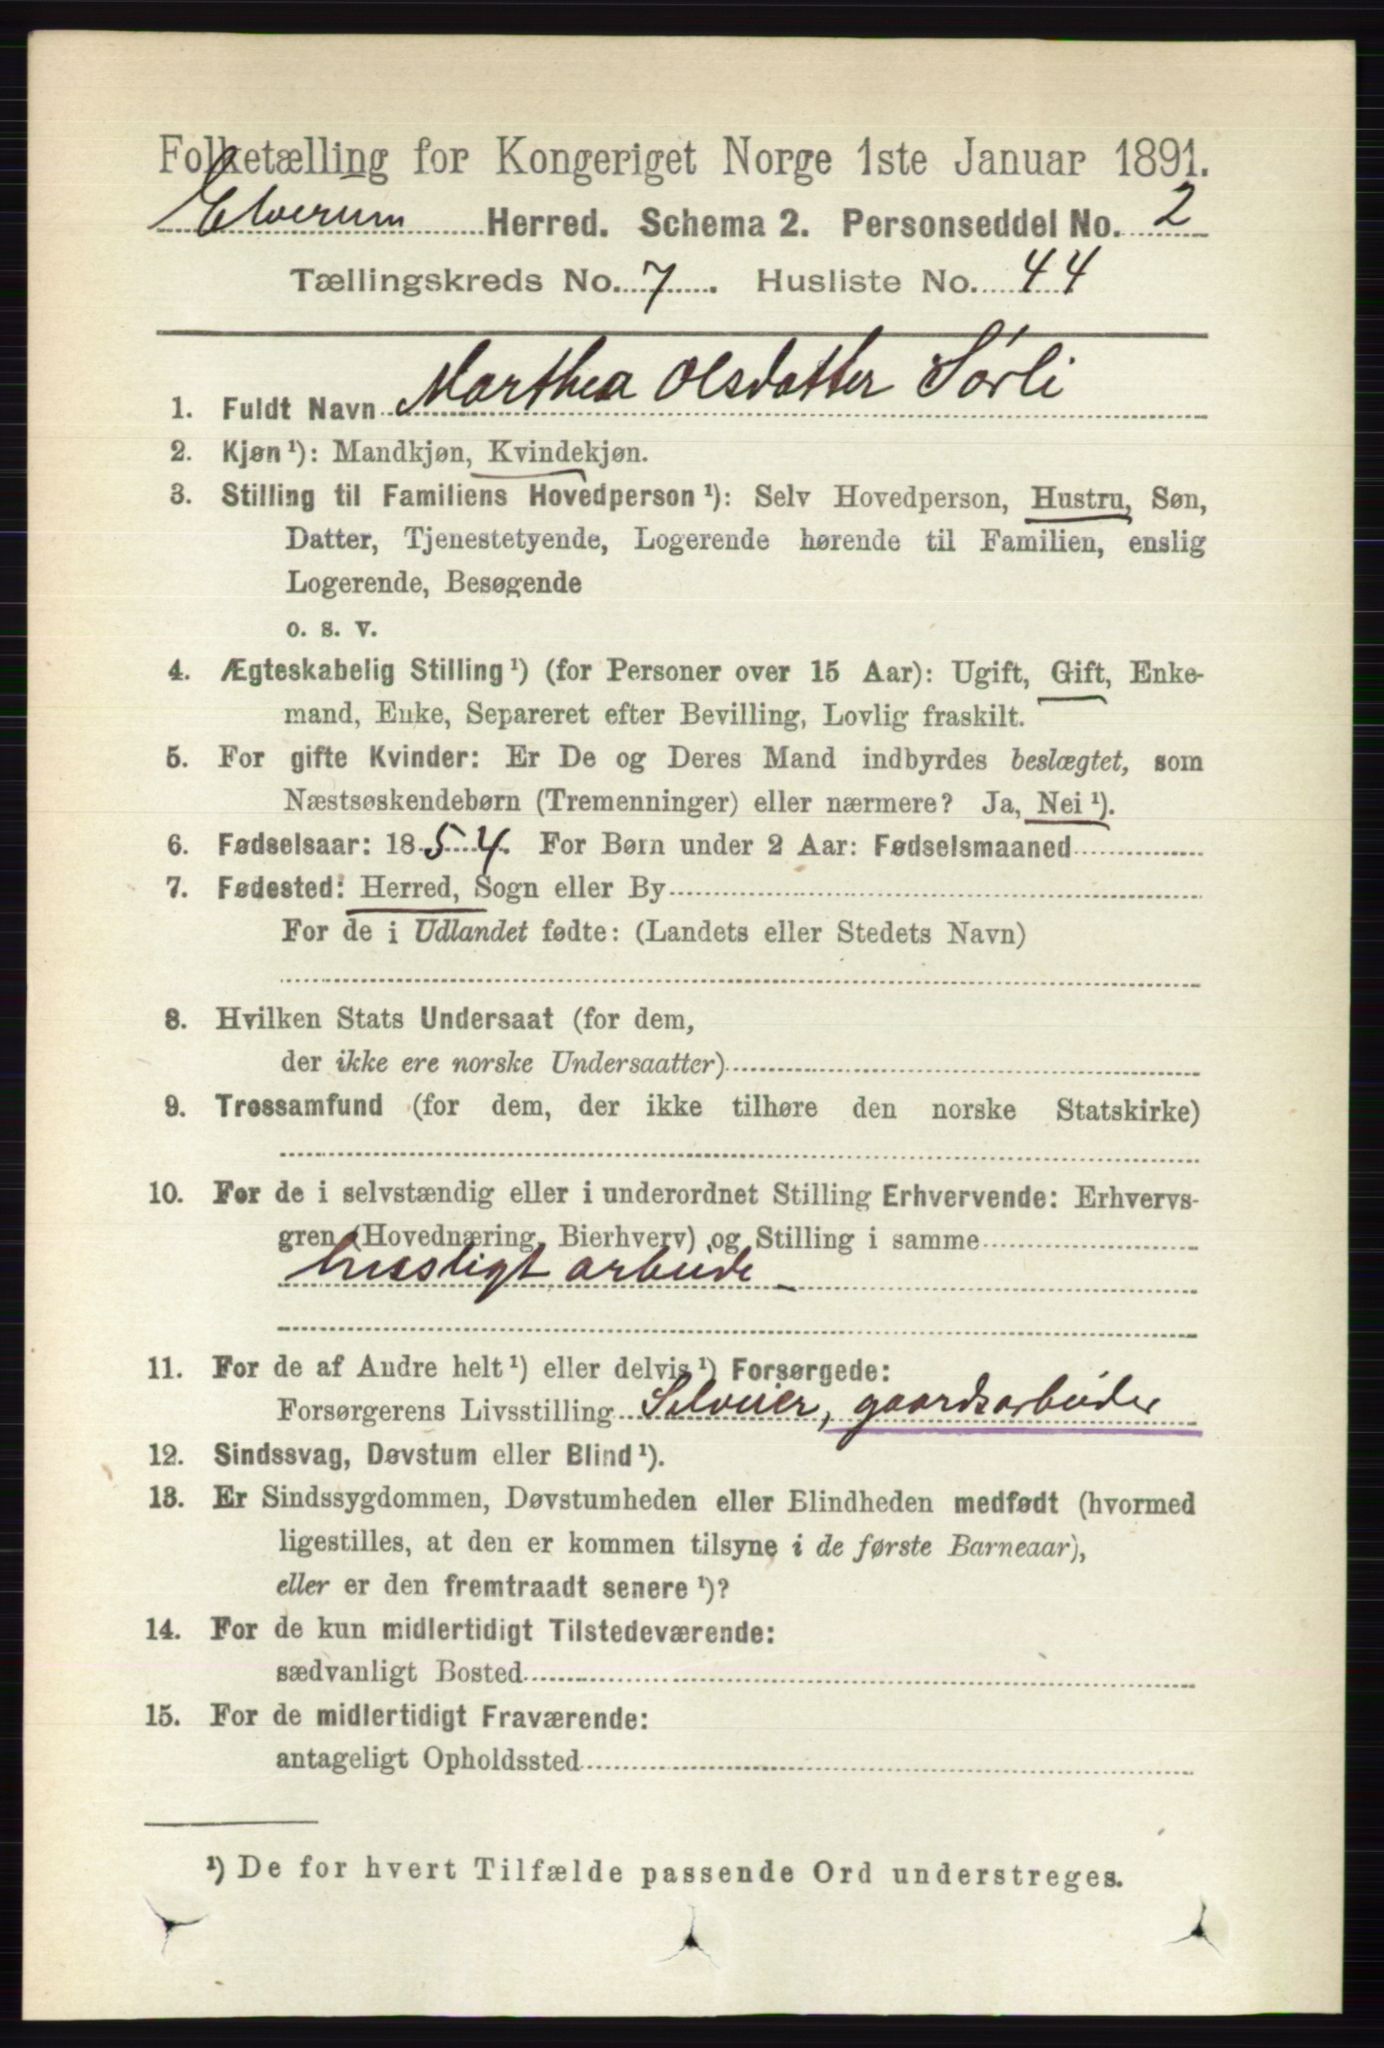 Folketælling for Kongeriget Norge 1ste Januar 1891.
Elverum Herred. Schema 2. Personseddel No. 2
Tællingskreds No. 7. Husliste No. 44
1. Fuldt Navn Marthea Olsdatter Sørli
2. Kjøn ¹): Mandkjøn, Kvindekjøn.
3. Stilling til Familiens Hovedperson ¹): Selv Hovedperson, Hustru, Søn,
Datter, Tjenestetyende, Logerende hørende til Familien, enslig
Logerende, Besøgende
o. s. v.
4. Ægteskabelig Stilling ¹) (for Personer over 15 Aar): Ugift, Gift, Enke-
mand, Enke, Separeret efter Bevilling, Lovlig fraskilt.
5. For gifte Kvinder: Er De og Deres Mand indbyrdes beslægtet, som
Næstsøskendebørn (Tremenninger) eller nærmere? Ja, Nei ¹).
6. Fødselsaar: 1854. For Børn under 2 Aar: Fødselsmaaned
7. Fødested: Herred, Sogn eller By
For de i Udlandet fødte: (Landets eller Stedets Navn)
8. Hvilken Stats Undersaat (for dem,
der ikke ere norske Undersaatter)
9. Trossamfund (for dem, der ikke tilhøre den norske Statskirke)
10. For de i selvstændig eller i underordnet Stilling Erhvervende: Erhvervs-
gren (Hovednæring, Bierhverv) og Stilling i samme
huusligt arbeide
11. For de af Andre helt ¹) eller delvis ¹) Forsørgede:
Forsørgerens Livsstilling Selveier, gaardsarbeider
12. Sindssvag, Døvstum eller Blind ¹).
13. Er Sindssygdommen, Døvstumheden eller Blindheden medfødt (hvormed
ligestilles, at den er kommen tilsyne i de første Barneaar),
eller er den fremtraadt senere ¹)?
14. For de kun midlertidigt Tilstedeværende:
sædvanligt Bosted
15. For de midlertidigt Fraværende:
antageligt Opholdssted
¹) De for hvert Tilfælde passende Ord understreges.